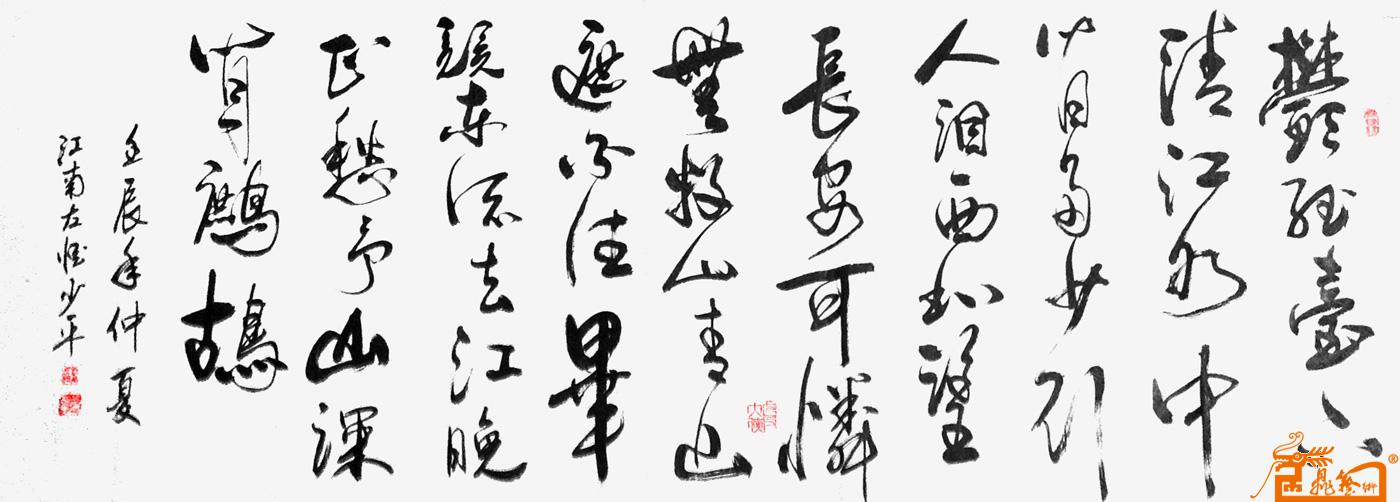 鬱孤臺下
清江水中
間多少行
人泪西北望
長安可憐
無數山青山
遮不住畢
竟東流去江晚
正愁予山深
聞鷓鴣
壬辰年仲夏
江南左少平